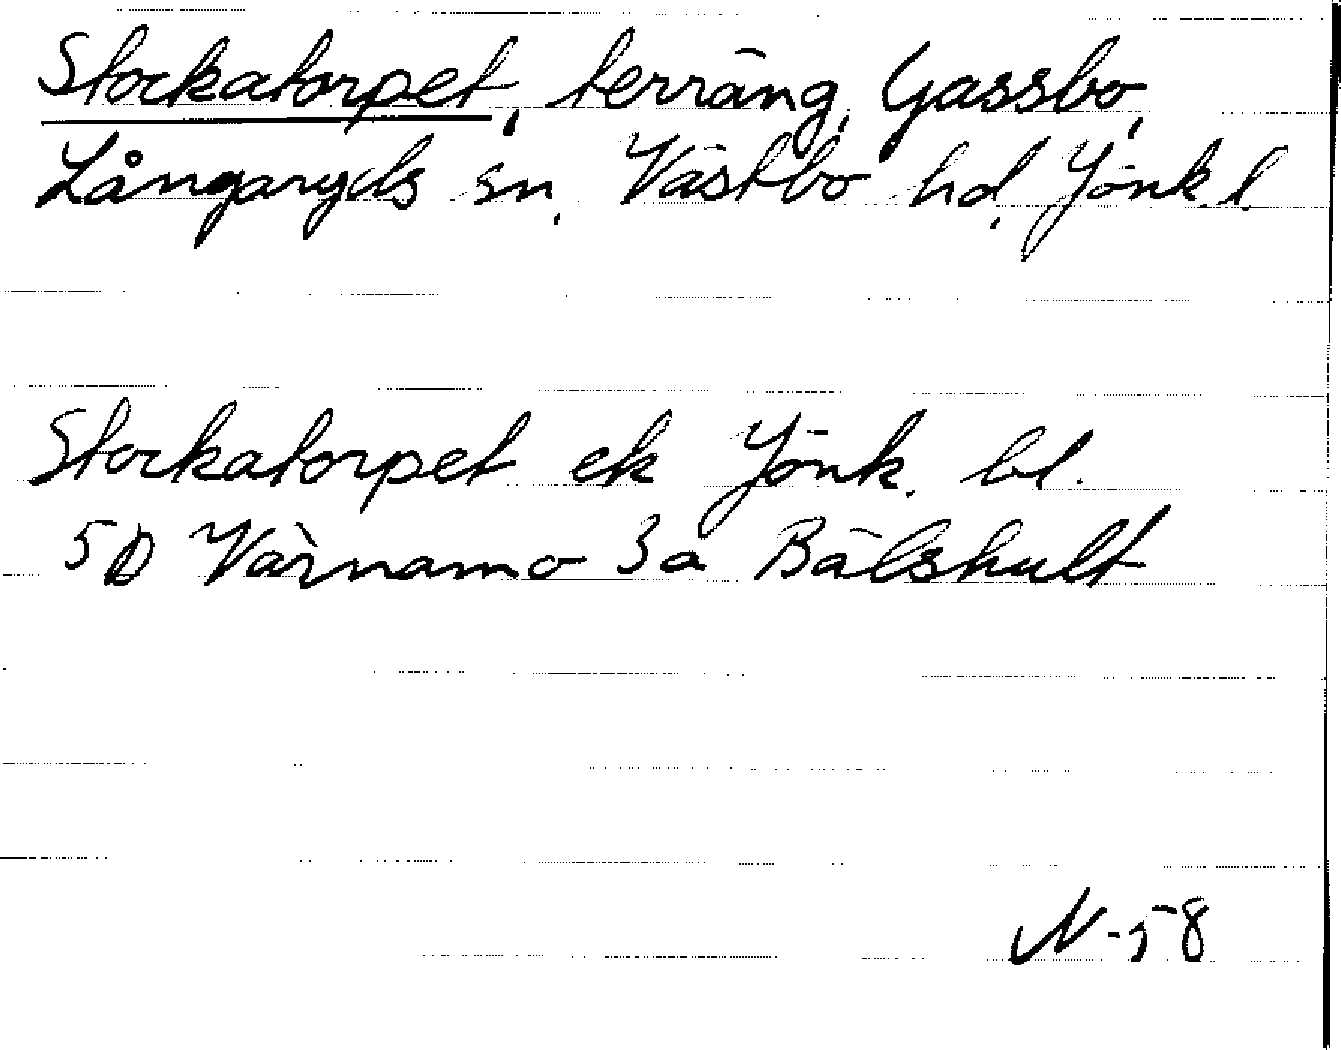 Stockatorpet, terräng, Gassbo,
Långaryds sn, Västbo hd, Jönk. l.
Stockatorpet ek Jönk. bl.
5D Värnamo 3a Bälshult
N-58